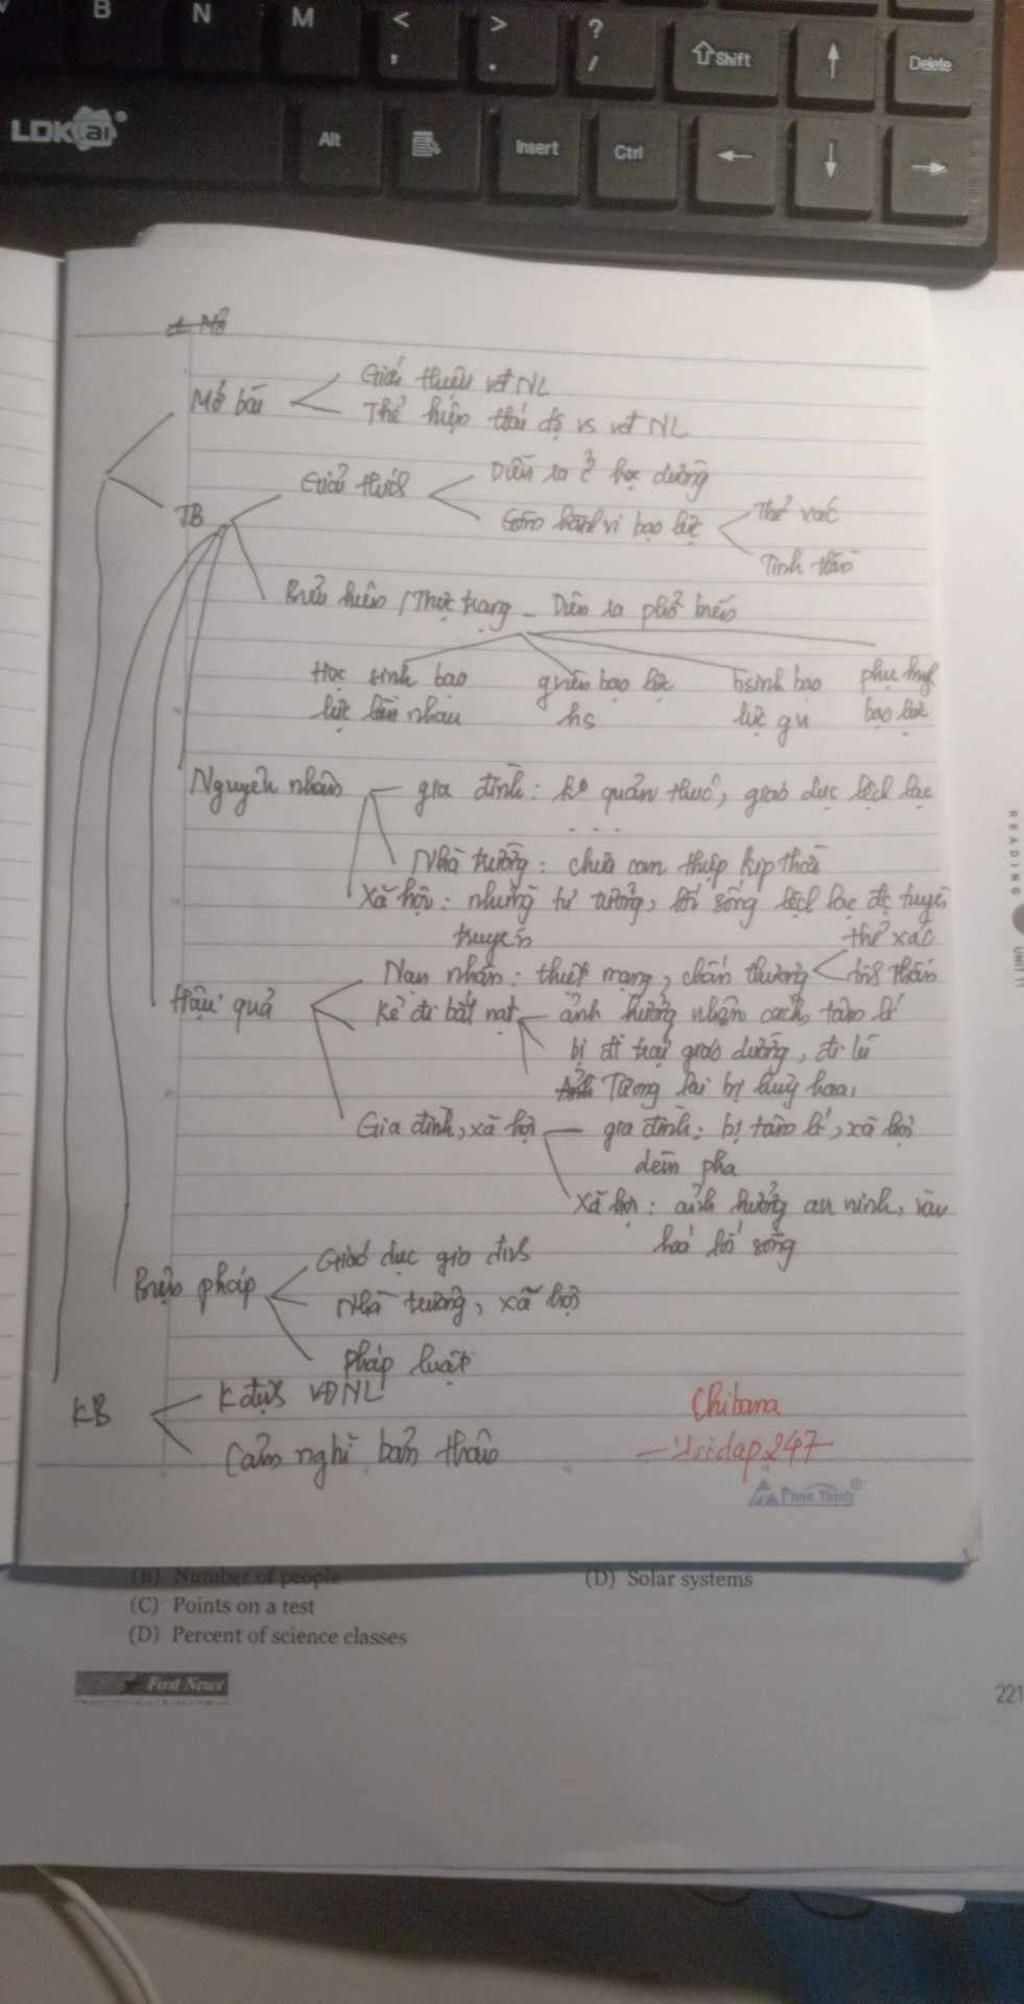 B N M < , > . ? / Shift ↑ Delete
LDK ai Alt Insert Ctrl ← ↓ →
1. Mở
Mở bài
Giới thiệu vđ NL
Thể hiện thái độ vs vđ NL
TB
Giải thích
Diễn ra ở học đường
Gồm hành vi bạo lực
Thể xác
Tinh thần
Biểu hiện / Thực trạng - Diễn ra phổ biến
Học sinh bạo lực lẫn nhau
gviên bạo lực hs
hsinh bạo lực gv
phụ huynh bạo lực
Nguyên nhân
gia đình: ko quản thúc, giáo dục lệch lạc
...
Nhà trường: chưa can thiệp kịp thời
Xã hội: những tư tưởng, lối sống lệch lạc đc tuyên
truyền
Hậu quả
Nạn nhân: thiệt mạng, chấn thương
thể xác
tinh thần
Kẻ đi bắt nạt
ảnh hưởng nhân cách, tâm lí
bị đi trại giáo dưỡng, đi tù
Tương lai bị huỷ hoại
Gia đình, xã hội
gia đình: bị tâm lí, xã hội
dèm pha
Xã hội: ảnh hưởng an ninh, văn
hoá lối sống
Biện pháp
Giáo dục gia đình
Nhà trường, xã hội
Pháp luật
KB
K định VĐNL
Cảm nghĩ bản thân
Chibana
(B) Number of people
(C) Points on a test
(D) Percent of science classes
(D) Solar systems
First News
221
READING
UNIT 11